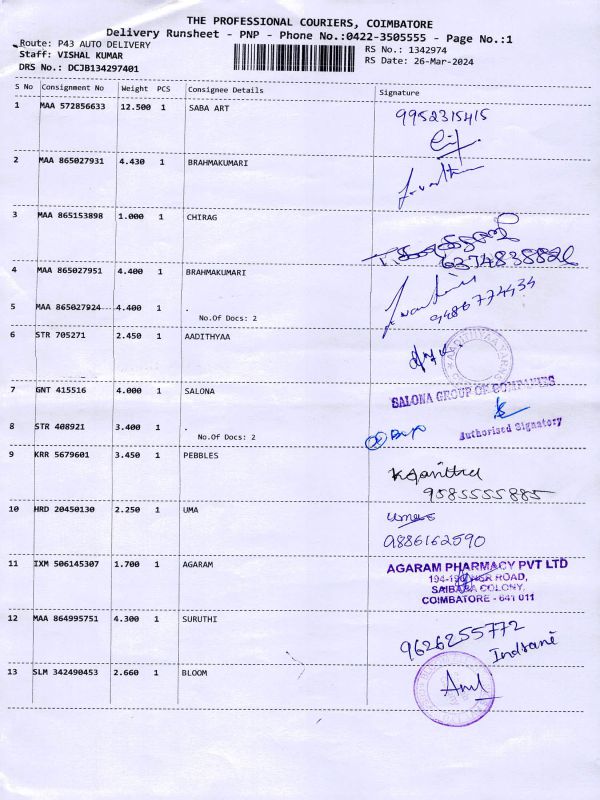 THE PROFESSIONAL COURIERS, COIMBATORE
Delivery Runsheet - PNP - Phone No.:0422-3505555 - Page No.:1
Route: P43 AUTO DELIVERY
RS No.: 1342974
Staff: VISHAL KUMAR
RS Date: 26-Mar-2024
DRS No.: DCJB134297401
S No Consignment No Weight PCS Consignee Details Signature
1 MAA 572856633 12.500 1 SABA ART 9952315415
2 MAA 865027931 4.430 1 BRAHMAKUMARI
3 MAA 865153898 1.000 1 CHIRAG
4 MAA 865027951 4.400 1 BRAHMAKUMARI
5 MAA 865027924 4.400 1 .
No.Of Docs: 2
6 STR 705271 2.450 1 AADITHYAA
7 GNT 415516 4.000 1 SALONA SALONA GROUP OF COMPANIES
8 STR 408921 3.400 1 . Authorised Signatory
No.Of Docs: 2
9 KRR 5679601 3.450 1 PEBBLES
9585555885
10 HRD 20450130 2.250 1 UMA
9886162590
11 IXM 506145307 1.700 1 AGARAM AGARAM PHARMACY PVT LTD
NSR ROAD,
SAIBABA COLONY,
COIMBATORE - 641 011
12 MAA 864995751 4.300 1 SURUTHI 9626255772
Indrani
13 SLM 342490453 2.660 1 BLOOM